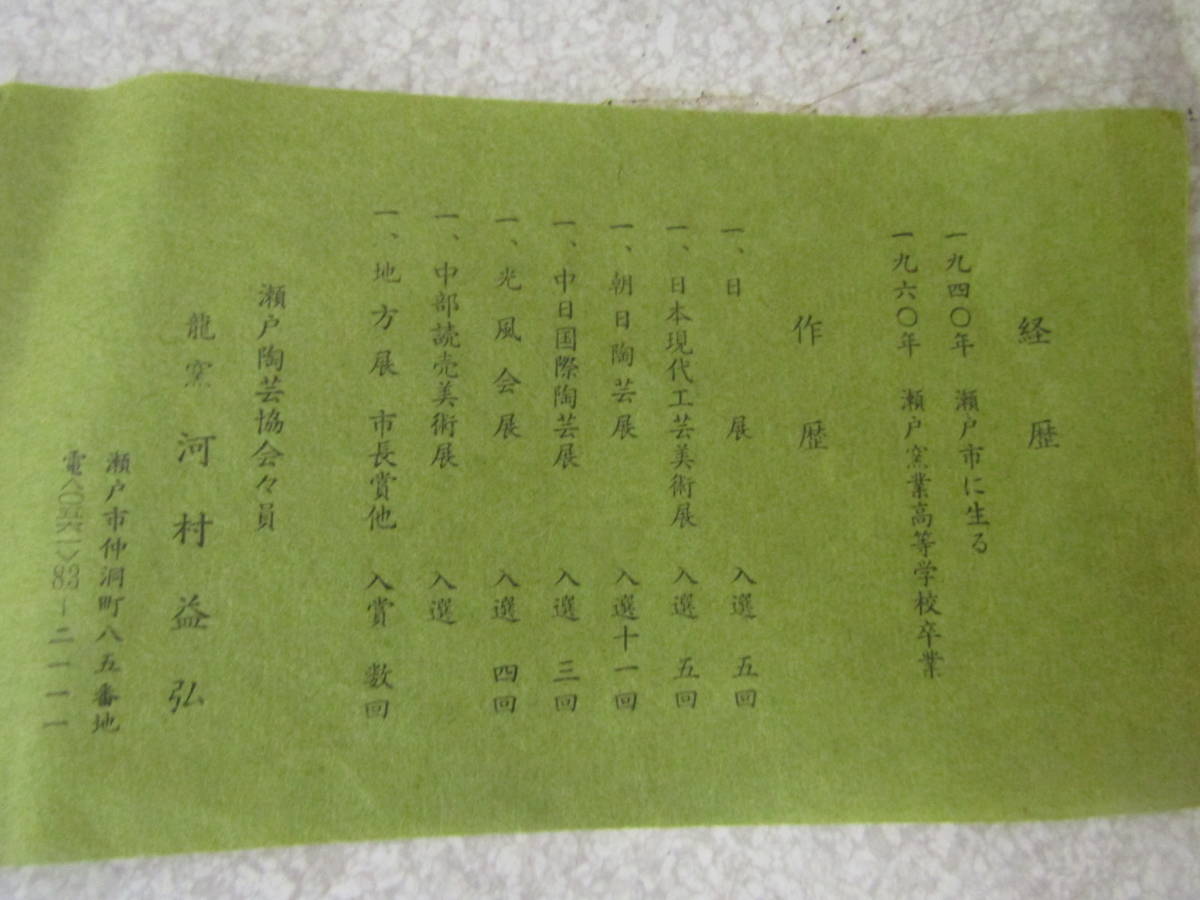 経歴
一九四〇年 瀬戸市に生る
一九六〇年 瀬戸窯業高等学校卒業
作歴
一、日展 入選 五回
一、日本現代工芸美術展 入選 五回
一、朝日陶芸展 入選十一回
一、中日国際陶芸展 入選 三回
一、光風会展 入選 四回
一、中部読売美術展 入選
一、地方展 市長賞他 入賞 数回
瀬戸陶芸協会々員
龍窯 河村益弘
瀬戸市仲洞町八五番地
電〈〇五六一〉83-二一一一